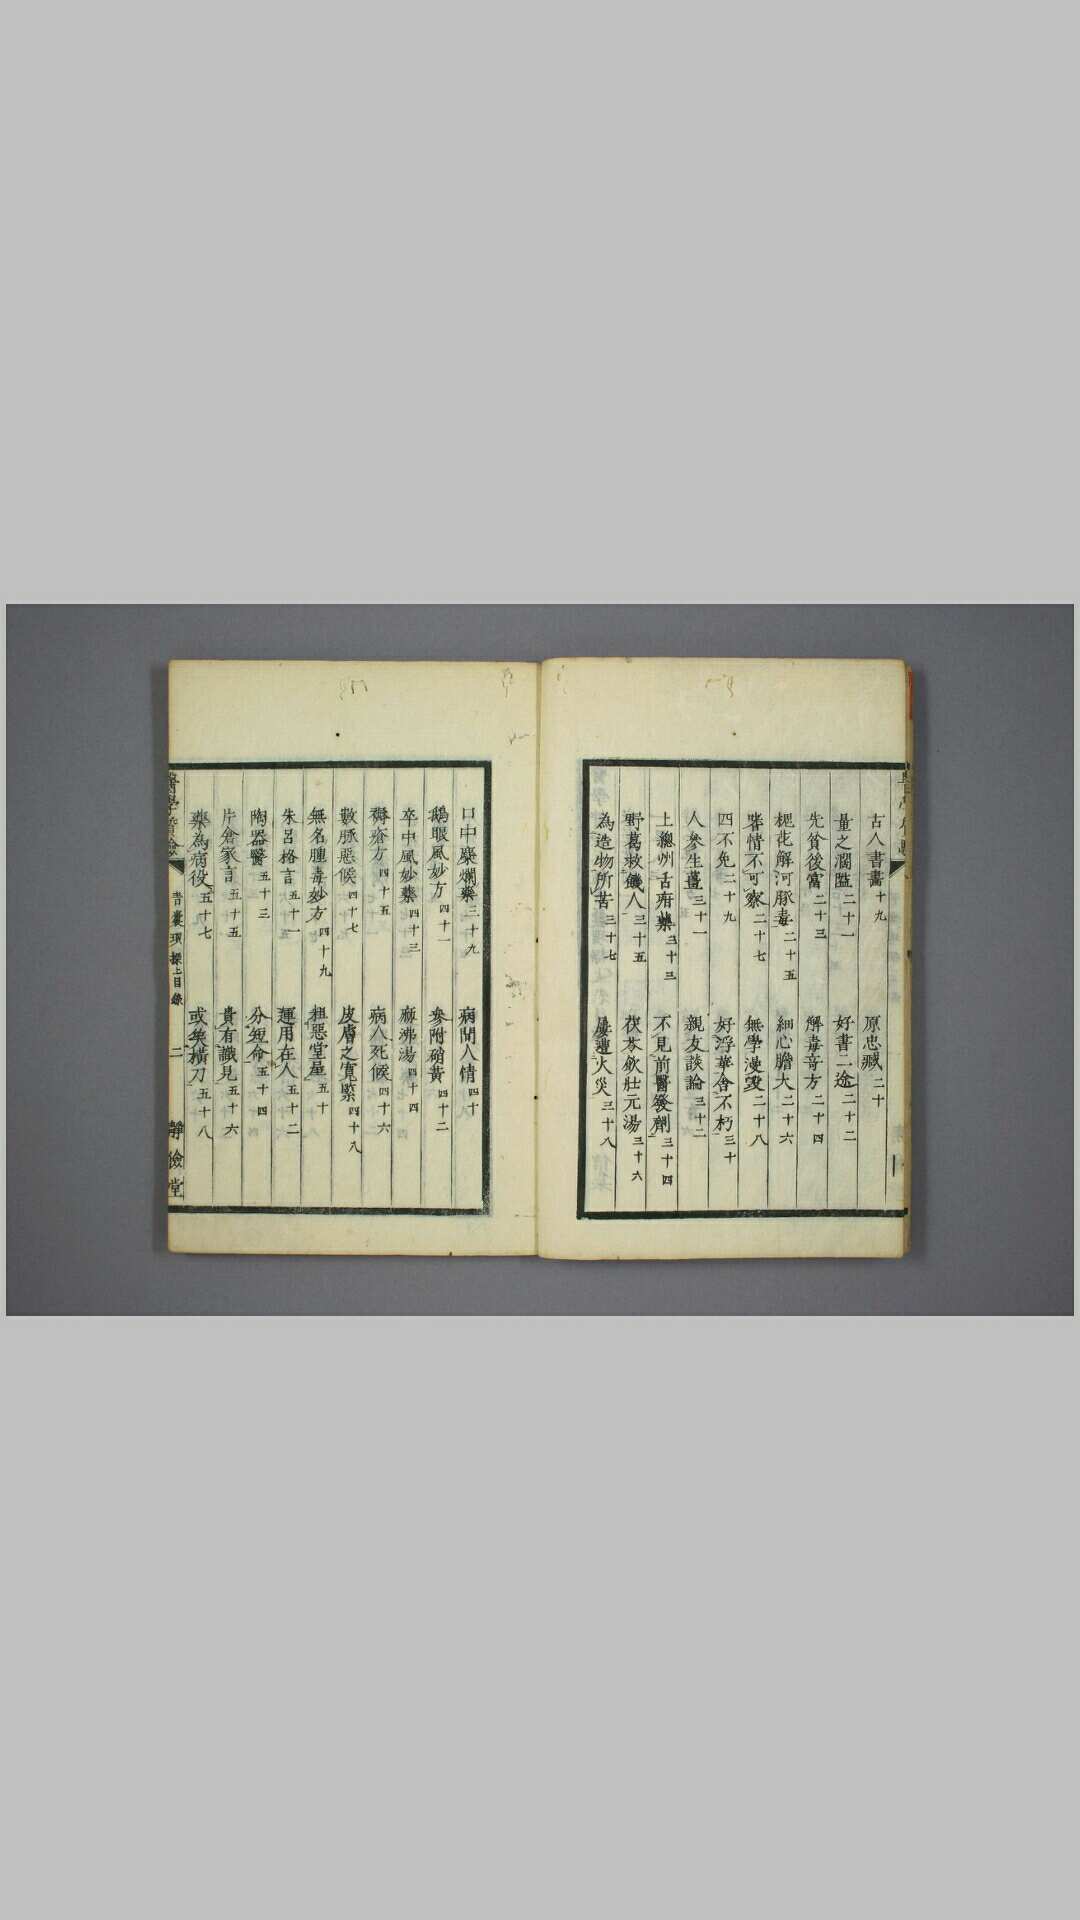 古人書畵十九 原忠臧二十
量之濶隘二十一 好書二途二十二
先貧後富二十三 解毒奇方二十四
杷花解河豚毒二十五 細心膽大二十六
情不可察二十七 無學漫二十八
四不免二十九 好浮華舎不朽三十
人參生薑三十一 親友談論三十二
上總州舌疳藥三十三 不見前醫發劑三十四
野葛救饑人三十五 茯苓飲壯元湯三十六
為造物所苦三十七 屢遭火災三十八
口中糜爛藥三十九 病間人情四十
鵝眼風妙方四十一 參附硝黃四十二
卒中風妙藥四十三 麻沸湯四十四
瘡方四十五 病人死候四十六
數脈惡候四十七 皮膚之寬緊四十八
無名腫毒妙方四十九 粗惡堂量五十
朱呂格言五十一 運用在人五十二
陶器醫五十三 分短命五十四
片倉家言五十五 貴有識見五十六
藥為病役五十七 或笑橫刀五十八
醫學 青囊瑣探上目錄 二 靜儉堂